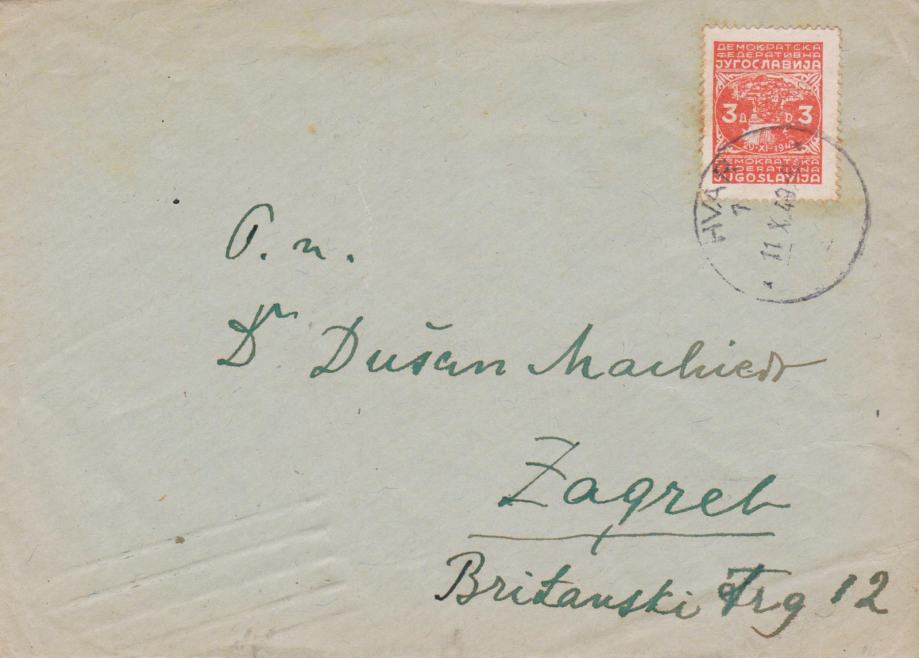 ДЕМОКРАТСКА
ФЕДЕРАТИВНА
ЈУГОСЛАВИЈА
3 Д D 3
DEMOKRATSKA
FEDERATIVNA
JUGOSLAVIJA
HVAR
11 X. 49
P. n.
Dr Dušan Machiedo
Zagreb
Britanski Trg 12